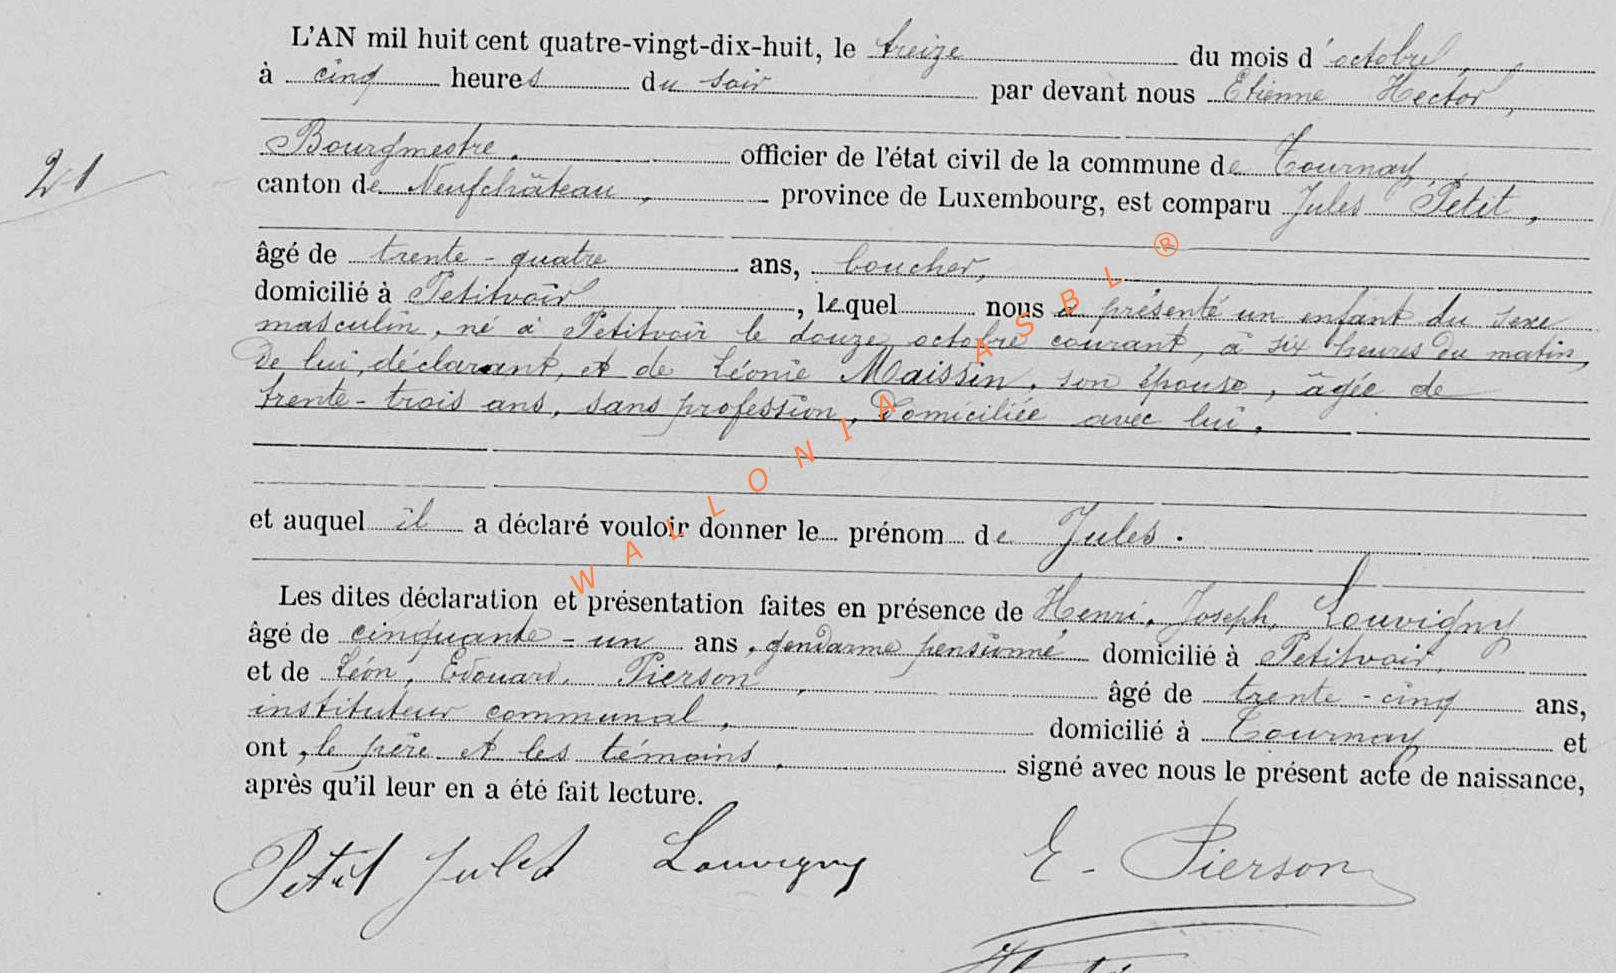 L'AN mil huit cent quatre-vingt-dix-huit, le treize du mois d'octobre,
à cinq heures du soir par devant nous Etienne Hector,
Bourgmestre, officier de l'état civil de la commune de Tournay,
21
canton de Neufchâteau, province de Luxembourg, est comparu Jules Petit,
âgé de trente-quatre ans, boucher,
domicilié à Petitvoir, lequel nous a présenté un enfant du sexe
masculin, né à Petitvoir le douze octobre courant, à six heures du matin,
de lui, déclarant, et de Léonie Maissin, son épouse, âgée de
trente-trois ans, sans profession, domiciliée avec lui,
et auquel il a déclaré vouloir donner le prénom de Jules.
Les dites déclaration et présentation faites en présence de Henri, Joseph, Louvigny
âgé de cinquante-un ans, gendarme pensionné domicilié à Petitvoir,
et de Léon, Edouard, Pierson, âgé de trente-cinq ans,
instituteur communal, domicilié à Tournay et
ont, le père et les témoins, signé avec nous le présent acte de naissance,
après qu'il leur en a été fait lecture.
Petit Jules Louvigny E. Pierson
WALLONIA ASBL ®